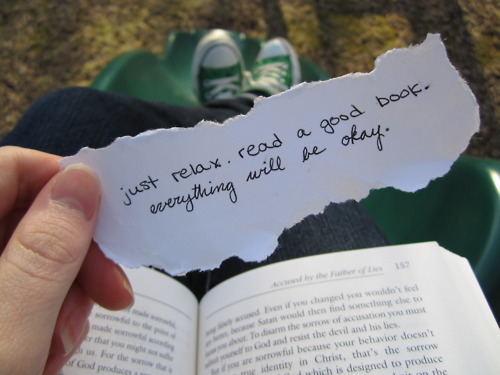 just relax. read a good book.
everything will be okay.
Accused by the Father of Lies 157
falsely accused. Even if you changed you wouldn't feel
better, because Satan would then find something else to
accuse you about. To disarm the sorrow of accusation you must
submit yourself to God and resist the devil and his lies.
But if you are sorrowful because your behavior doesn't
identity in Christ, that's the sorrow
which is designed to produce
made sorrowful,
sorrowful to the point of
made sorrowful according
that you might not suffer
us. For the sorrow that is
of God produces a